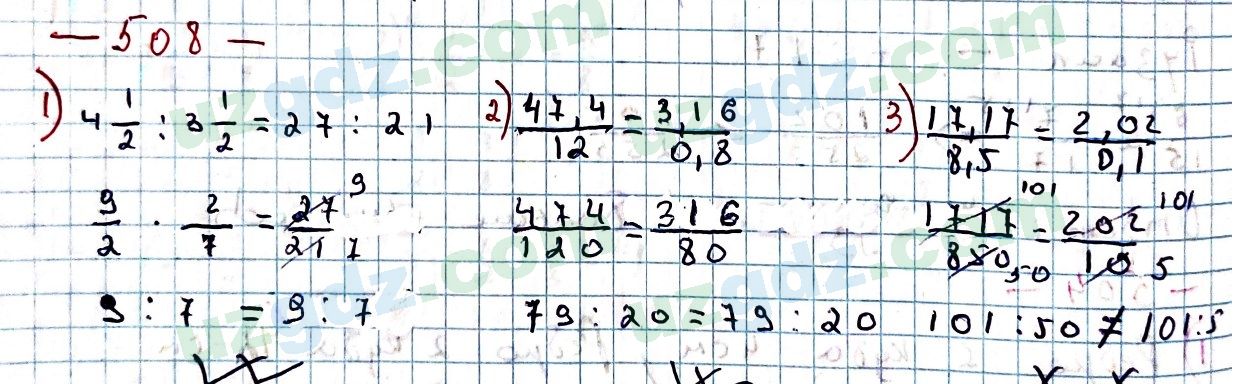 — 508 —
1) 4 1/2 : 3 1/2 = 27 : 21
2) 47,4/12 = 3,16/0,8
3) 17,17/8,5 = 2,02/0,1
9/2 · 2/7 = 27/21 9 7
474/120 = 316/80
1717/850 101 50 = 202/10 101 5
9 : 7 = 9 : 7
79 : 20 = 79 : 20
101 : 50 ≠ 101 : 5
uzgdz.com